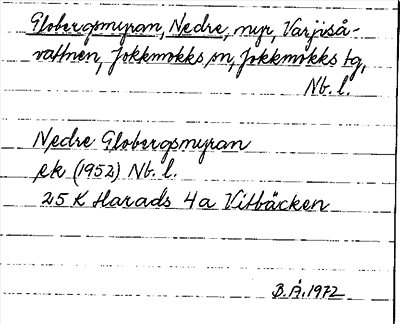 Globergsmyran, Nedre, myr, Varjiså-
vattnen, Jokkmokks sn, Jokkmokks tg,
Nb. l.
Nedre Globergsmyran
ek (1952) Nb. l.
25 K Harads 4a Vitbäcken
B.Å. 1972